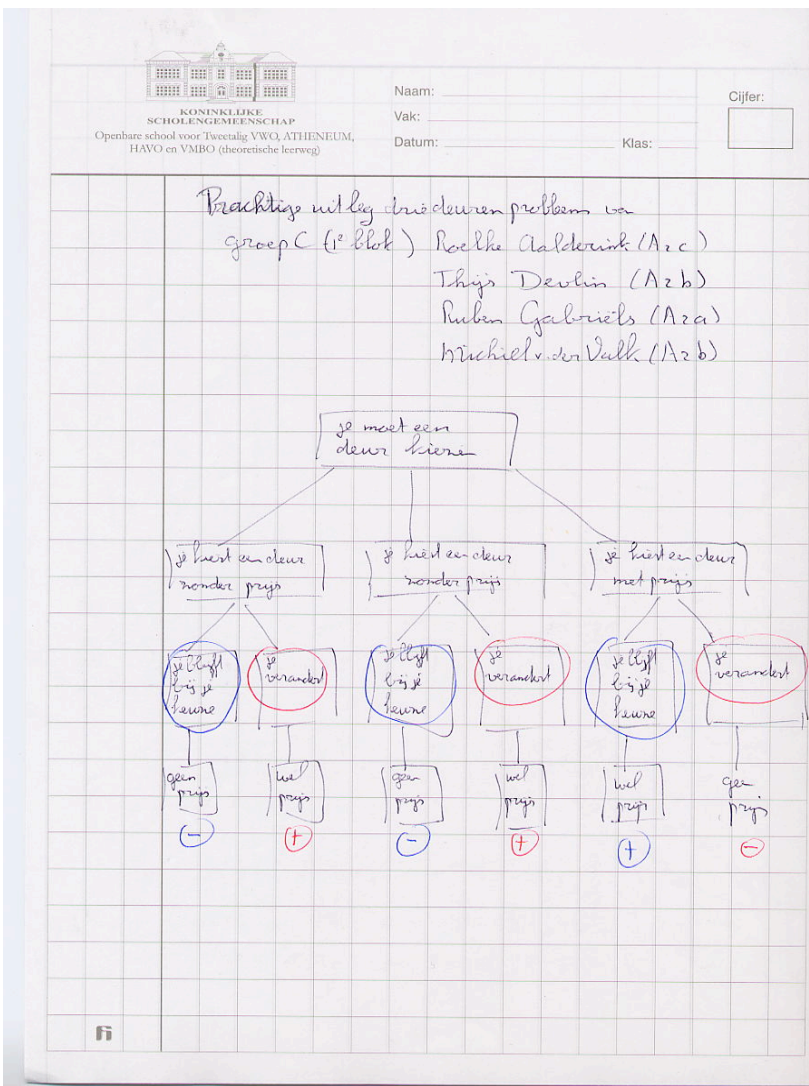 KONINKLIJKE
SCHOLENGEMEENSCHAP
Openbare school voor Tweetalig VWO, ATHENEUM,
HAVO en VMBO (theoretische leerweg)
Naam:
Vak:
Datum:
Klas:
Cijfer:
Prachtige uitleg driedeurenprobleem van
groep C (1e blok) Roelke Aalderink (A2c)
Thijs Devlin (A2b)
Ruben Gabriëls (A2a)
Michiel v. der Valk (A2b)
je moet een
deur kiezen
je kiest een deur
zonder prijs
je kiest een deur
zonder prijs
je kiest een deur
met prijs
je blijft
bij je
keuze
je
verandert
je blijft
bij je
keuze
je
verandert
je blijft
bij je
keuze
je
verandert
geen
prijs
wel
prijs
geen
prijs
wel
prijs
wel
prijs
geen
prijs
- + - + + -